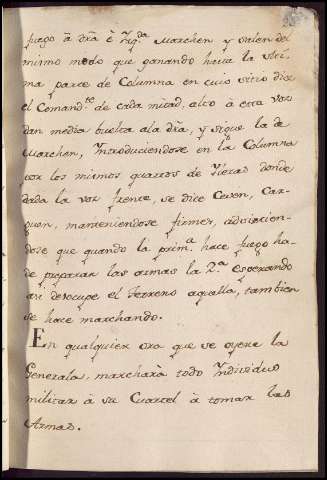 fuego â dr̃a è Yzq.da Marchen y salen del
mismo modo que ganando hacia la ulti-
ma parte de Columna en cuio sitio dice
el Comand.te de cada mitad, alto à esta voz
dan media buelta ala dr̃a, y sigue la de
Marchen, Introduciendose en la Columna
por los mismos quartos de donde
dada la voz frente, se dice Cesen, Car-
guen, manteniendose firmes, advirtien-
dose que quando la prim.a hace fuego ha-
de preparar las armas la 2.a esperando
asi desocupe el Terreno aquella, tambien
se hace marchando.
En qualquier ora que se oyere la
Generala, marcharà todo Individuo
militar à su Cuartel à tomar las
Armas.